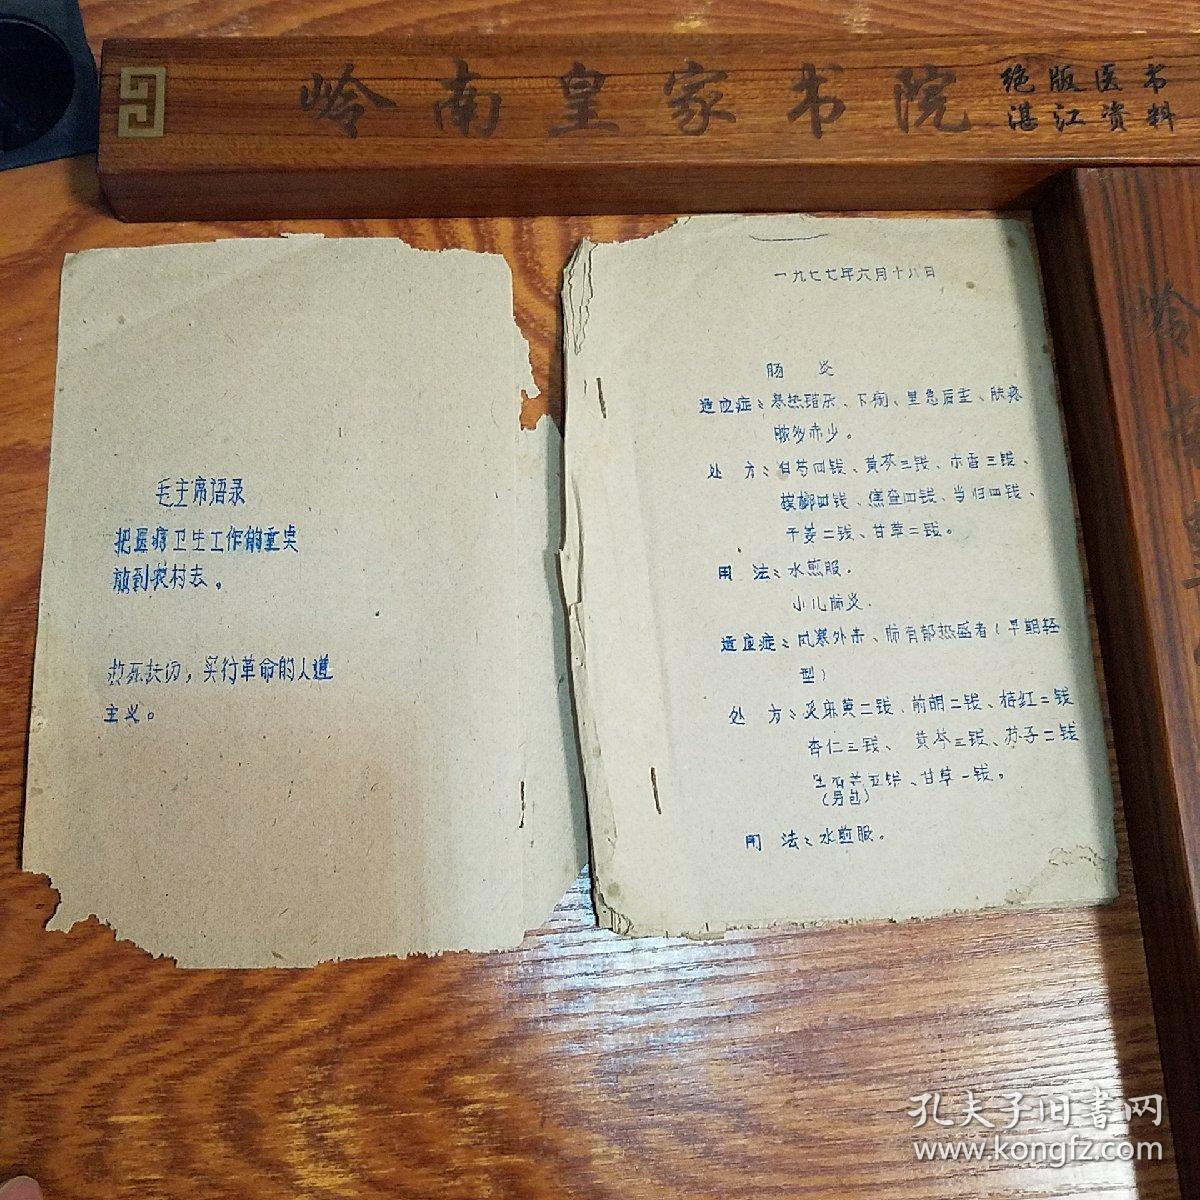 岭南皇家书院
绝版医书
湛江资料
毛主席语录
把医疗卫生工作的重点
放到农村去。
救死扶伤，实行革命的人道
主义。
一九七七年六月十八日
肠 炎
适应症：寒热错杂、下痢、里急后重、腹疼
脓多赤少。
处 方：白芍四钱、黄芩三钱、木香三钱、
槟榔四钱、焦查四钱、当归四钱、
干姜二钱、甘草二钱。
用 法：水煎服.
小儿肺炎.
适应症：风寒外束、肺有郁热盛者(早期轻
型)
处 方：炙麻黄二钱、前胡二钱、桔红二钱
杏仁三钱、黄芩三钱、苏子二钱
生石羔五钱、甘草一钱。
(另包)
用 法：水煎服。
孔夫子旧书网
www.kongfz.com